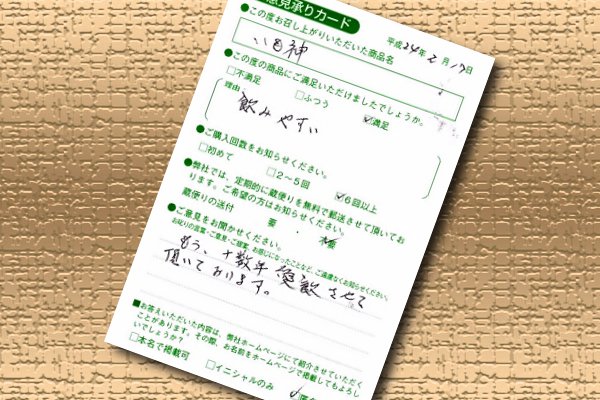 意見承りカード
平成24年2月17日
●この度お召し上がりいただいた商品名
八日神
●この度の商品にご満足いただけましたでしょうか。
□不満足 □ふつう ☑満足
理由
飲みやすい
●ご購入回数をお知らせください。
□初めて □2～5回 ☑6回以上
●弊社では、定期的に蔵便りを無料で郵送させて頂いてお
ります。ご希望の方はお知らせください。
蔵便りの送付 要 ・
●ご意見をお聞かせください。
お叱りの言葉・ご意見・ご提案、お感じになったことなど、ご遠慮なくお知らせください。
もう、十数年愛飲させて
頂いております。
■お答えいただいた内容は、弊社ホームページにて紹介させていただく
ことがあります。その際、お名前をホームページで掲載してもよろし
いでしょうか？
□本名で掲載可 □イニシャルのみ